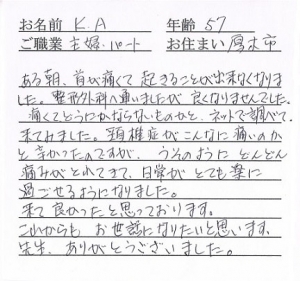 お名前 K.A 年齢 57
ご職業 主婦・パート お住まい 厚木市
ある朝、首が痛くて起きることが出来なくなりま
した。整形外科へ通いましたが良くなりませんでした。
痛くてどうにかならないものかと、ネットで調べて、
来てみました。頚椎症がこんなに痛いのか
と辛かったのですが、うそのように どんどん
痛みがとれてきて、日常がとても楽に
過ごせるようになりました。
来て良かったと思っております。
これからも お世話になりたいと思います。
先生、ありがとうございました。